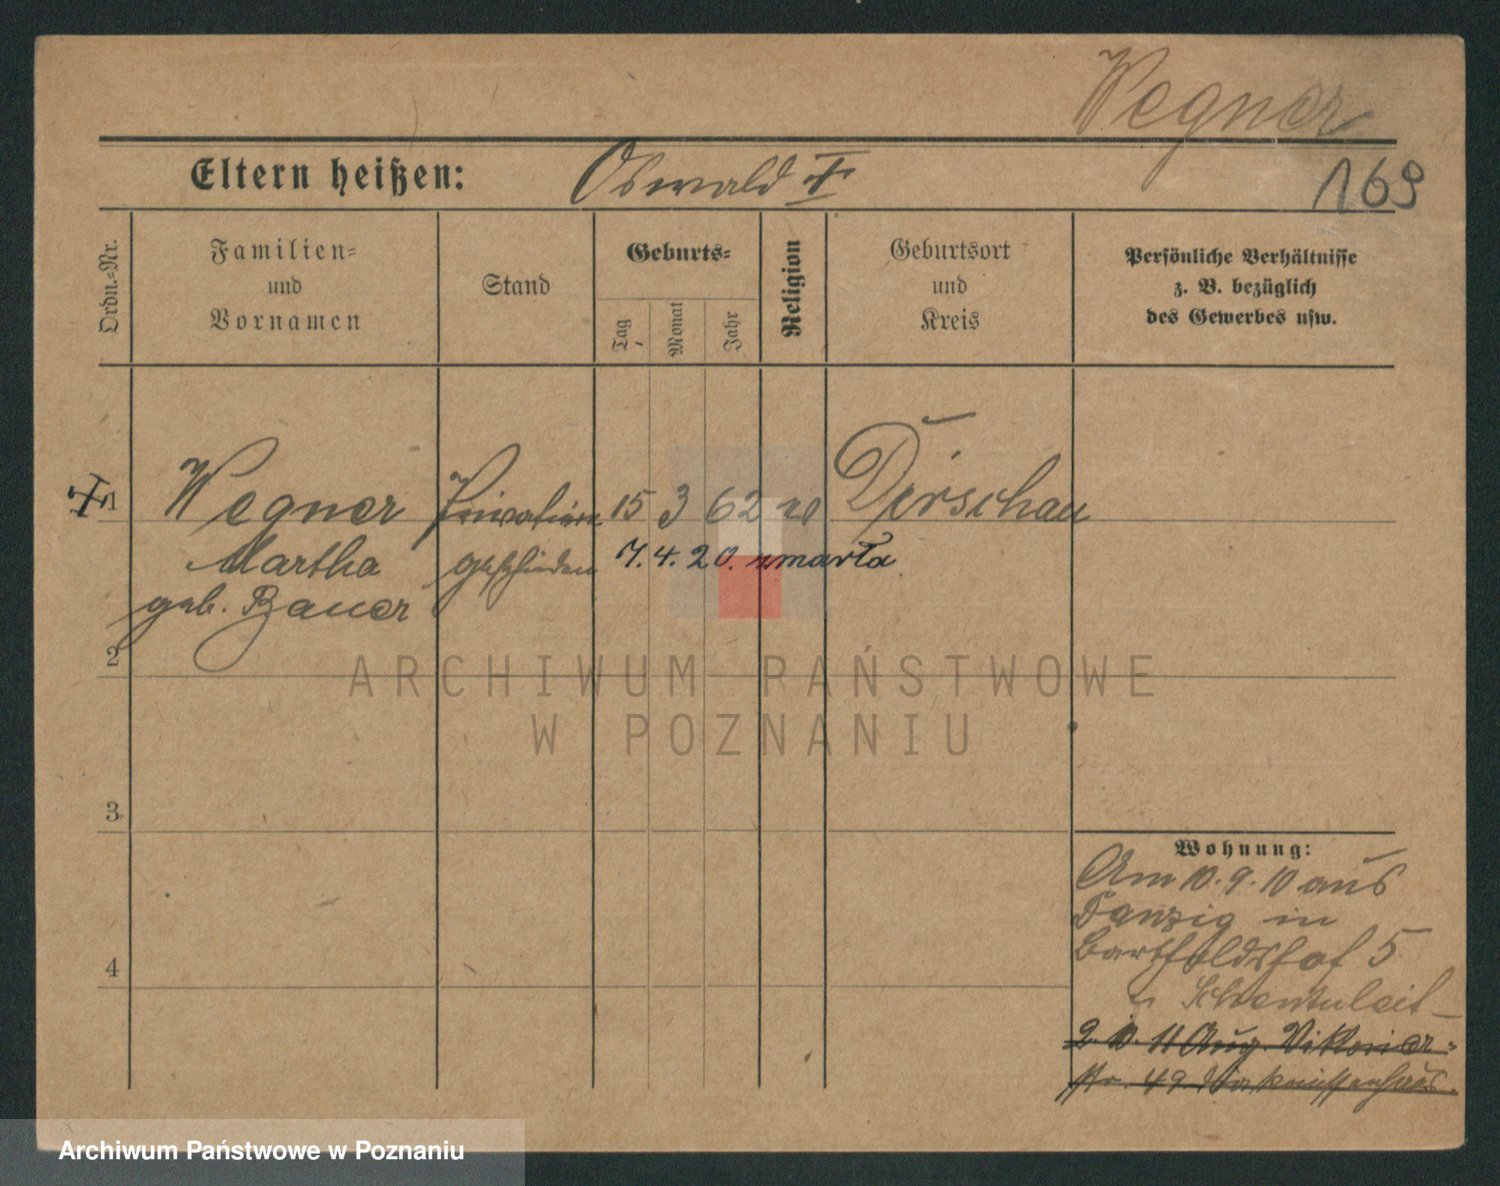 Wegner
169
Eltern heißen: Oswald †
Ordn.-Nr.
Familien-
und
Vornamen
Stand
Geburts-
Tag
Monat
Jahr
Religion
Geburtsort
und
Kreis
Persönliche Verhältnisse
z. B. bezüglich
des Gewerbes usw.
1 Wegner Privatiere 15 3 62 Dirschau
Martha geschieden 7. 4. 20. zmarła
geb. Bauer
2
3
4
Wohnung:
Am 10. 9. 10 aus
Danzig in
Bartholdshof 5
2. 10. 11 Aug. Viktoriastr-
str. 49 Diakonissenhaus
ARCHIWUM PAŃSTWOWE
W POZNANIU
Archiwum Państwowe w Poznaniu